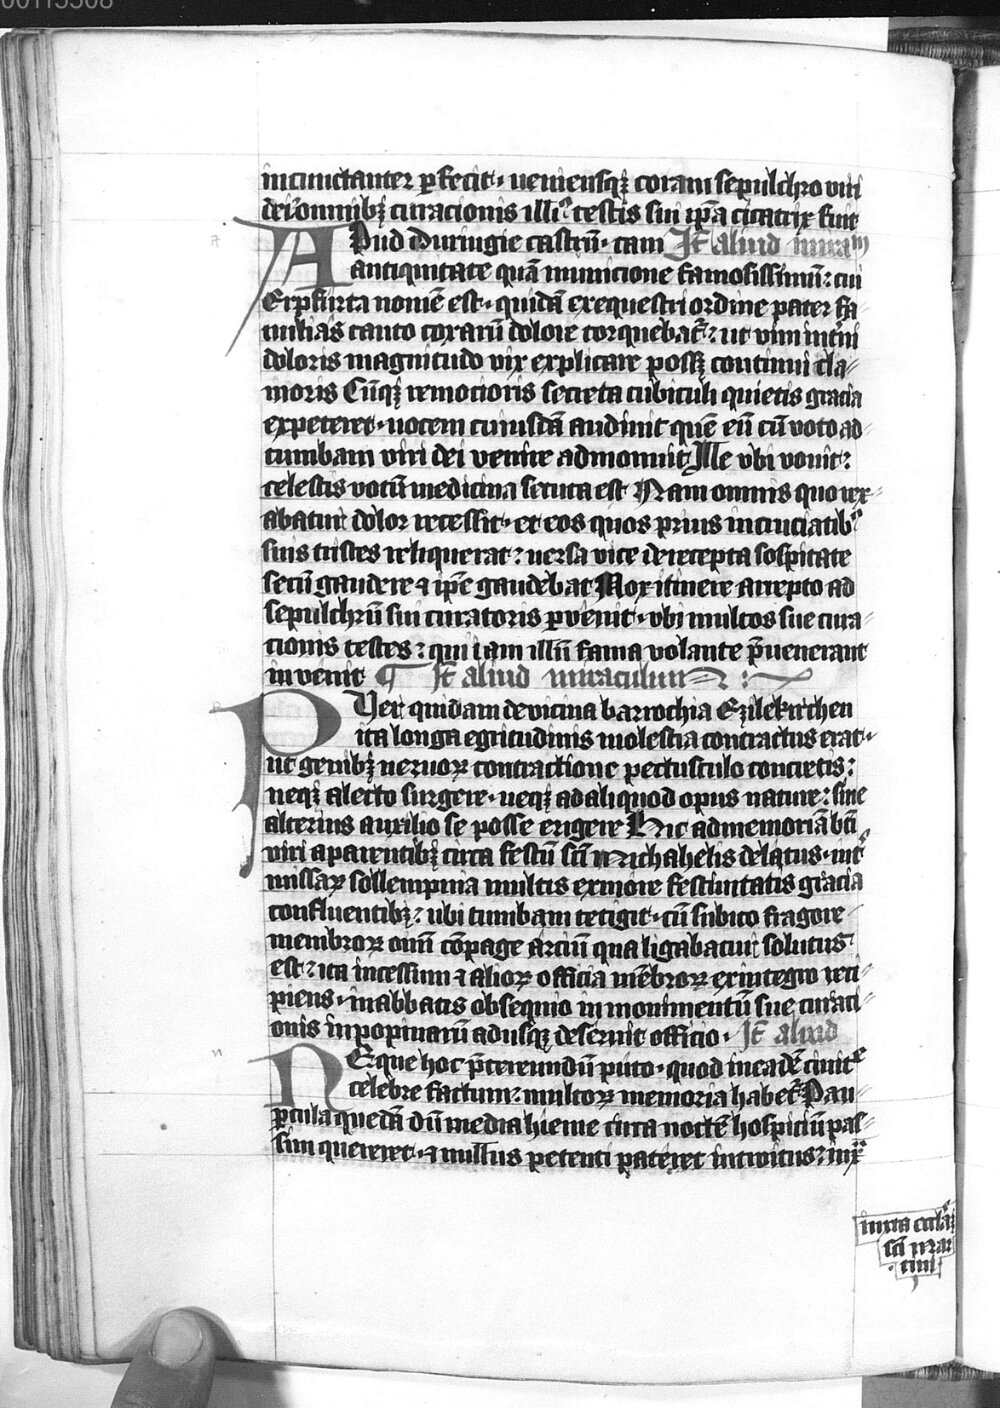 00113308
incunctanter ꝑfecit · ueniensqꝫ coram sepulchro viri
dei omnibꝫ curacionis illiꝰ testis sui ip̄a cicatrix fuit
APud Duringie castrū · tam Jt̄ aliud miracm̄
antiquitate quā municione famosissimū : cui
Erpfurta nomē est · quidā ex equestri ordine pater fa-
milias tanto coxarū dolore torquebat᷑ : ut vim int̄ni
doloris magnitudo vix explicare possꝫ continui cla-
moris Cūqꝫ remocioris secreta cubiculi quietis gracia
expeteret · uocem cuiusdā audiuit quē eū cū voto ad
tumbam viri dei venire admonuit Ille vbi vouit :
celestis votū medicina secuta est Nam omnis quo vex-
abatur dolor recessit · et eos quos prius in cruciatibꝰ
suis tristes reliquerat : uersa vice de recepta sospitate
secū gaudere ⁊ ip̄e gaudebat Mox itinere arrepto ad
sepulchrū sui curatoris ꝑuenit · vbi multos sue cura-
cionis testes : qui iam illū fama volante p̄uenerant
invenit ¶ Jt̄ aliud miraculum :
PUer quidam de vicina barrochia Ezilekirchen
ita longa egritudinis molestia contractus erat ·
ut genibꝫ neruoꝝ contractione pectusculo concretis :
neqꝫ a lecto surgere · neqꝫ ad aliquod opus nature : sine
alterius auxilio se posse erigere Hic ad memoriā bt̄i
viri a parentibꝫ circa festū sc̄i Michahelis delatus · int᷑
missaꝝ sollempnia multis ex more festiuitatis gracia
confluentibꝫ : ubi tumbam tetigit · cū subito fragore
membroꝝ omī cōpage artiū qua ligabatur solutus
est : ita incessum ⁊ alioꝝ officia mēbroꝝ ex integro reci-
piens · in abbatis obsequio in monimentū sue curaci-
onis in popinarū adusqꝫ deseruit officio · Jt̄ aliud
NEque hoc p̄tereundū puto · quod in eadē ciuitᵉ
celebre factum : multoꝝ memoria habet᷑ Pau-
ꝑcula quedā dū media hieme circa noctē hospiciū pas-
sim quereret · ⁊ nullus petenti pateret introitus :
iuxta eccl̄ā
sc̄i mar
tini